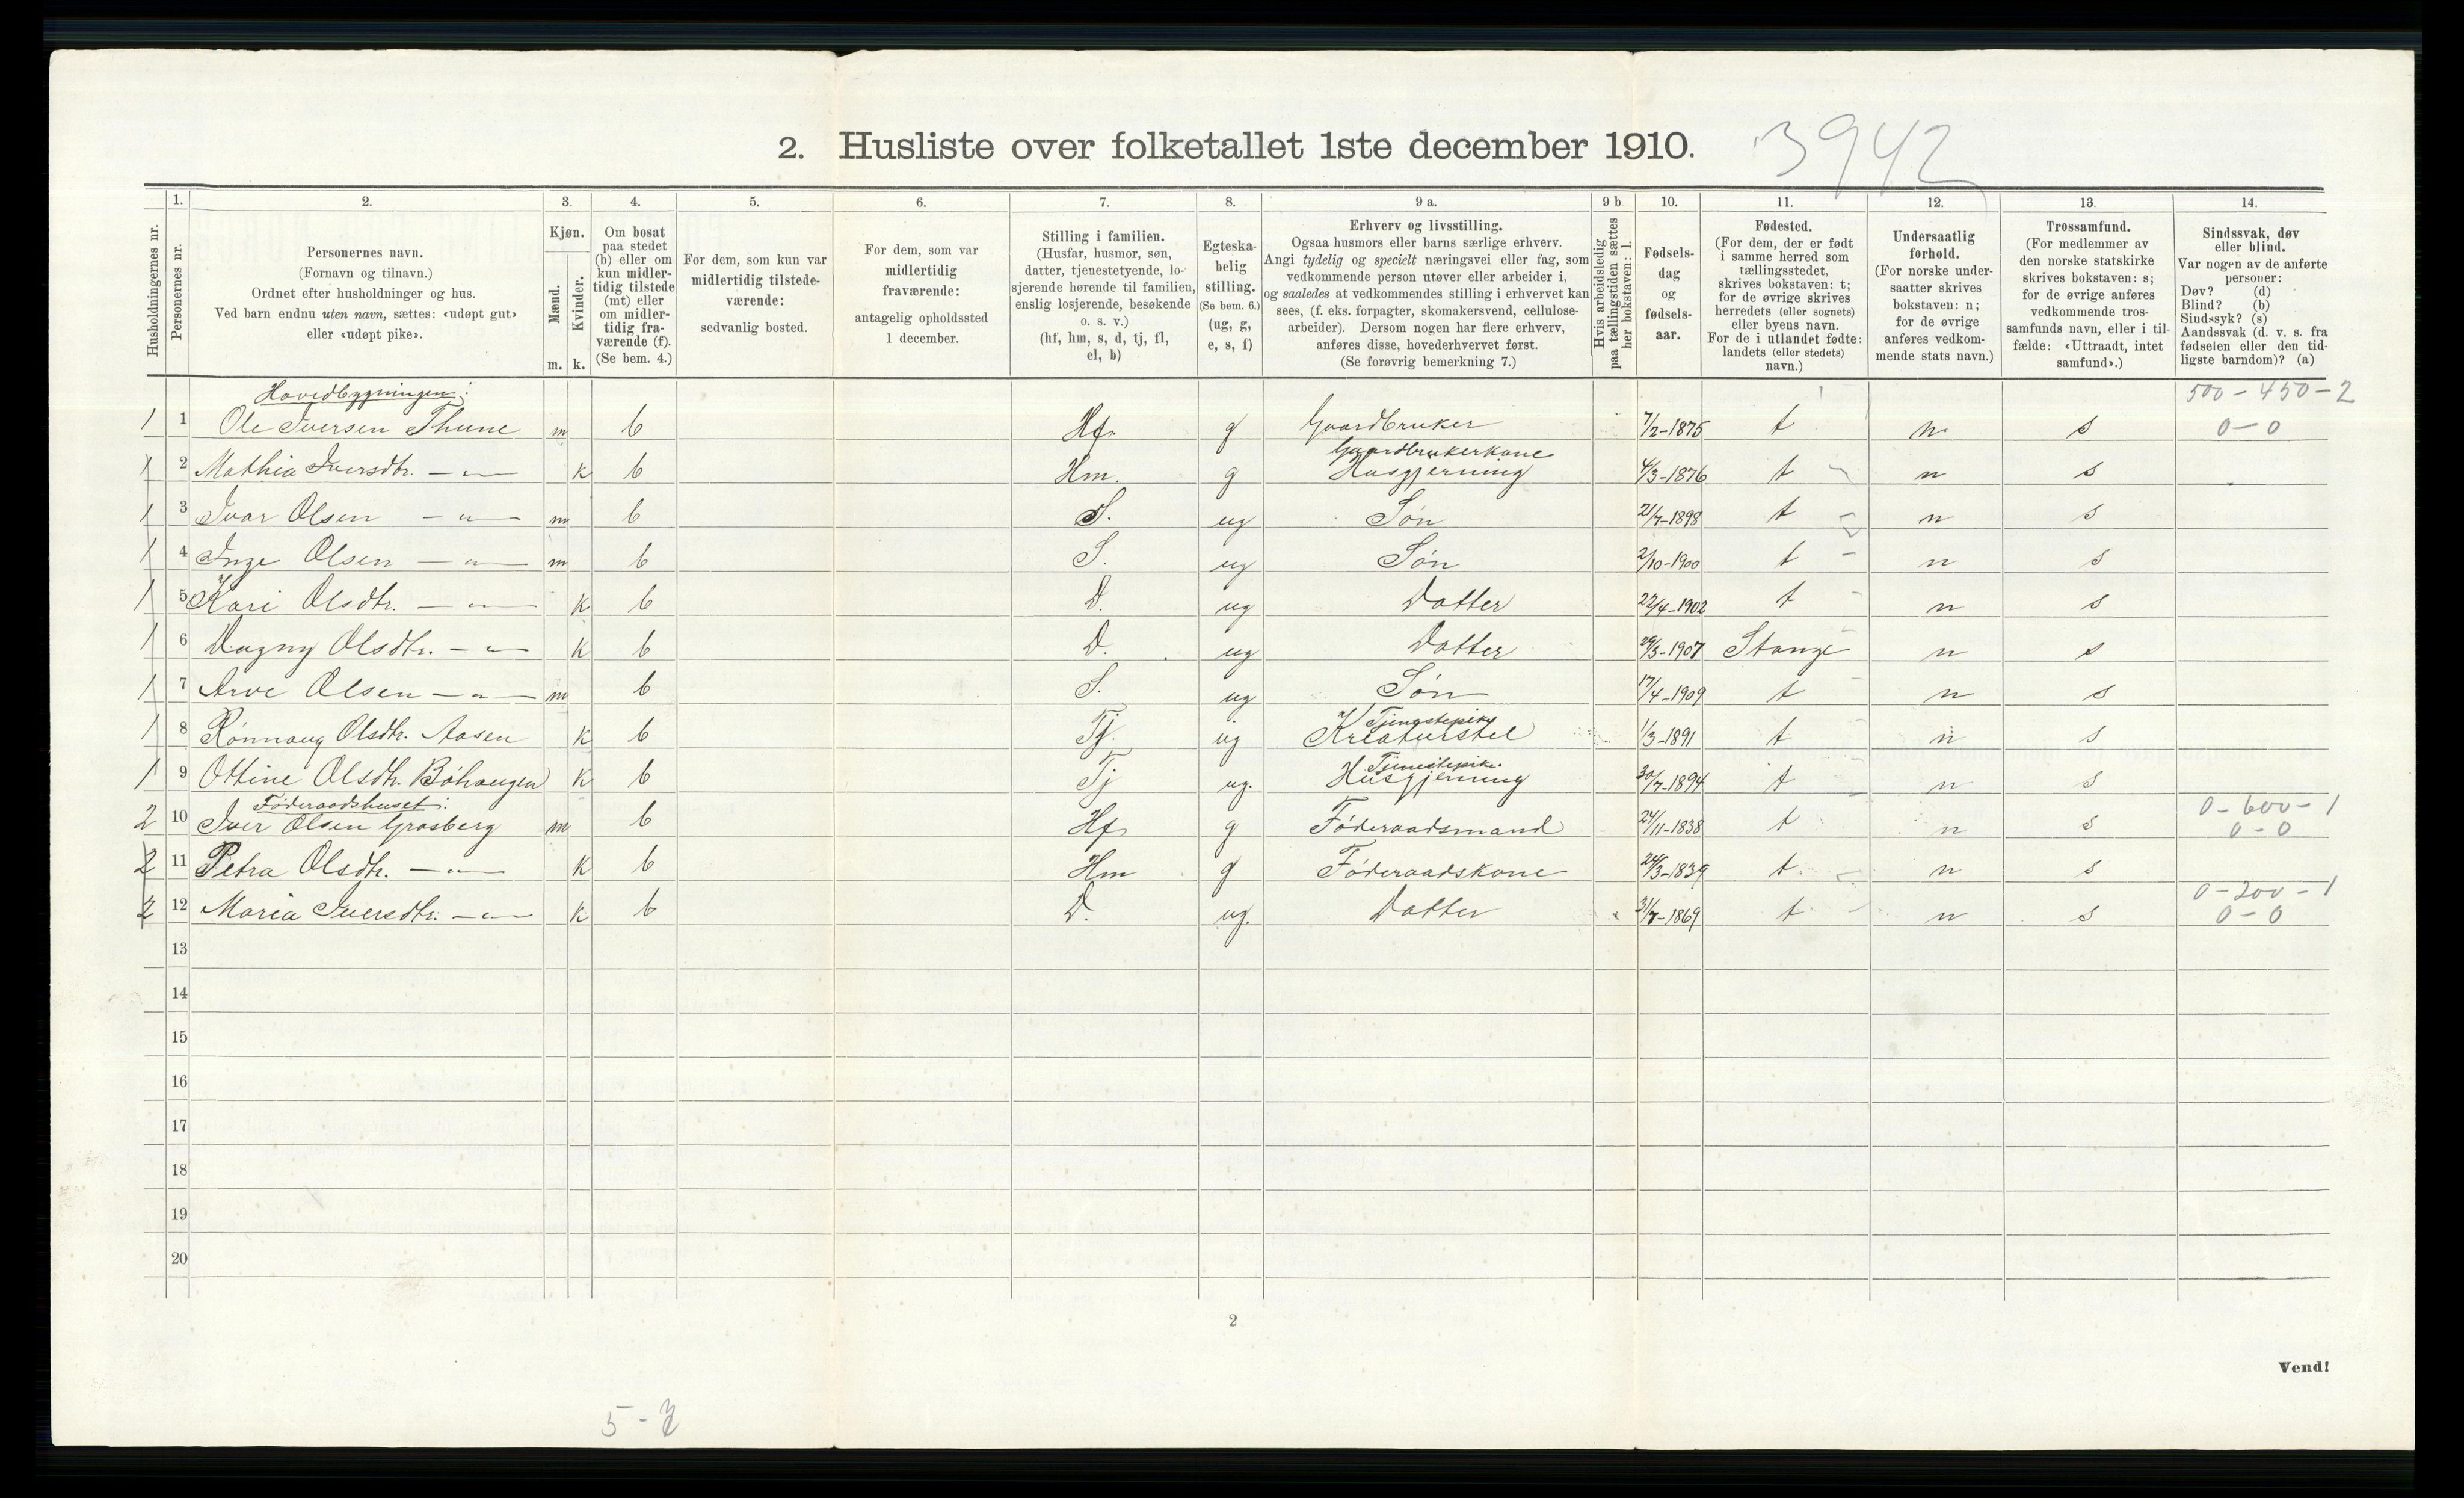 2. Husliste over folketallet 1ste december 1910.
3942
1. 2. 3. 4. 5. 6. 7. 8. 9 a. 9 b 10. 11. 12. 13. 14.
Husholdningernes nr.
Personernes nr.
Personernes navn.
(Fornavn og tilnavn.)
Ordnet efter husholdninger og hus.
Ved barn endnu uten navn, sættes: «udøpt gut»
eller «udøpt pike».
Kjøn.
Mænd.
Kvinder.
m. k.
Om bosat
paa stedet
(b) eller om
kun midler-
tidig tilstede
(mt) eller
om midler-
tidig fra-
værende (f).
(Se bem. 4.)
For dem, som kun var
midlertidig tilstede-
værende:
sedvanlig bosted.
For dem, som var
midlertidig
fraværende:
antagelig opholdssted
1 december.
Stilling i familien.
(Husfar, husmor, søn,
datter, tjenestetyende, lo-
sjerende hørende til familien,
enslig losjerende, besøkende
o. s. v.)
(hf, hm, s, d, tj, fl,
el, b)
Egteska-
belig
stilling.
(Se bem. 6.)
(ug, g,
e, s, f)
Erhverv og livsstilling.
Ogsaa husmors eller barns særlige erhverv.
Angi tydelig og specielt næringsvei eller fag, som
vedkommende person utøver eller arbeider i,
og saaledes at vedkommendes stilling i erhvervet kan
sees, (f. eks. forpagter, skomakersvend, cellulose-
arbeider). Dersom nogen har flere erhverv,
anføres disse, hovederhvervet først.
(Se forøvrig bemerkning 7.)
Hvis arbeidsledig
paa tællingstiden sættes
her bokstaven: l.
Fødsels-
dag
og
fødsels-
aar.
Fødested.
(For dem, der er født
i samme herred som
tællingsstedet,
skrives bokstaven: t;
for de øvrige skrives
herredets (eller sognets)
eller byens navn.
For de i utlandet fødte:
landets (eller stedets)
navn.)
Undersaatlig
forhold.
(For norske under-
saatter skrives
bokstaven: n;
for de øvrige
anføres vedkom-
mende stats navn.)
Trossamfund.
(For medlemmer av
den norske statskirke
skrives bokstaven: s;
for de øvrige anføres
vedkommende tros-
samfunds navn, eller i til-
fælde: «Uttraadt, intet
samfund».)
Sindssvak, døv
eller blind.
Var nogen av de anførte
personer:
Døv? (d)
Blind? (b)
Sindssyk? (s)
Aandssvak (d. v. s. fra
fødselen eller den tid-
ligste barndom)? (a)
Hovedbygningen: 500-450-2
1 1 Ole Iversen Thune m b Hf. g Gaardbruker 7/2-1875 t n s 0-0
Gaardbrukerkone
1 2 Mathia Iversdtr. —"— k b Hm. g Husgjerning 4/3-1876 t n s
1 3 Ivar Olsen —"— m b S. ug Søn 21/7-1898 t n s
1 4 Inge Olsen —"— m b S. ug Søn 2/10-1900 t n s
1 5 Kari Olsdtr. —"— k b D. ug Datter 22/4-1902 t n s
1 6 Dagny Olsdtr. —"— k b D. ug Datter 29/3-1907 Stange n s
1 7 Arve Olsen —"— m b S. ug Søn 17/4-1909 t n s
Tjenestepike
1 8 Rønnaug Olsdtr. Aasen k b Tj. ug Kreaturstel 1/3-1891 t n s
Tjenestepike.
1 9 Ottine Olsdtr. Bøhaugen k b Tj ug. Husgjerning 30/7-1894 t n s
Føderaadshuset: 0-600-1
2 10 Iver Olsen Grosberg m b Hf g Føderaadsmand 24/11-1838 t n s 0-0
2 11 Petra Olsdtr. —"— k b Hm g Føderaadskone 24/3-1839 t n s
0-200-1
2 12 Maria Iversdtr. —"— k b D. ug. Datter 31/7-1869 t n s 0-0
13
14
15
16
17
18
19
20
2
Vend!